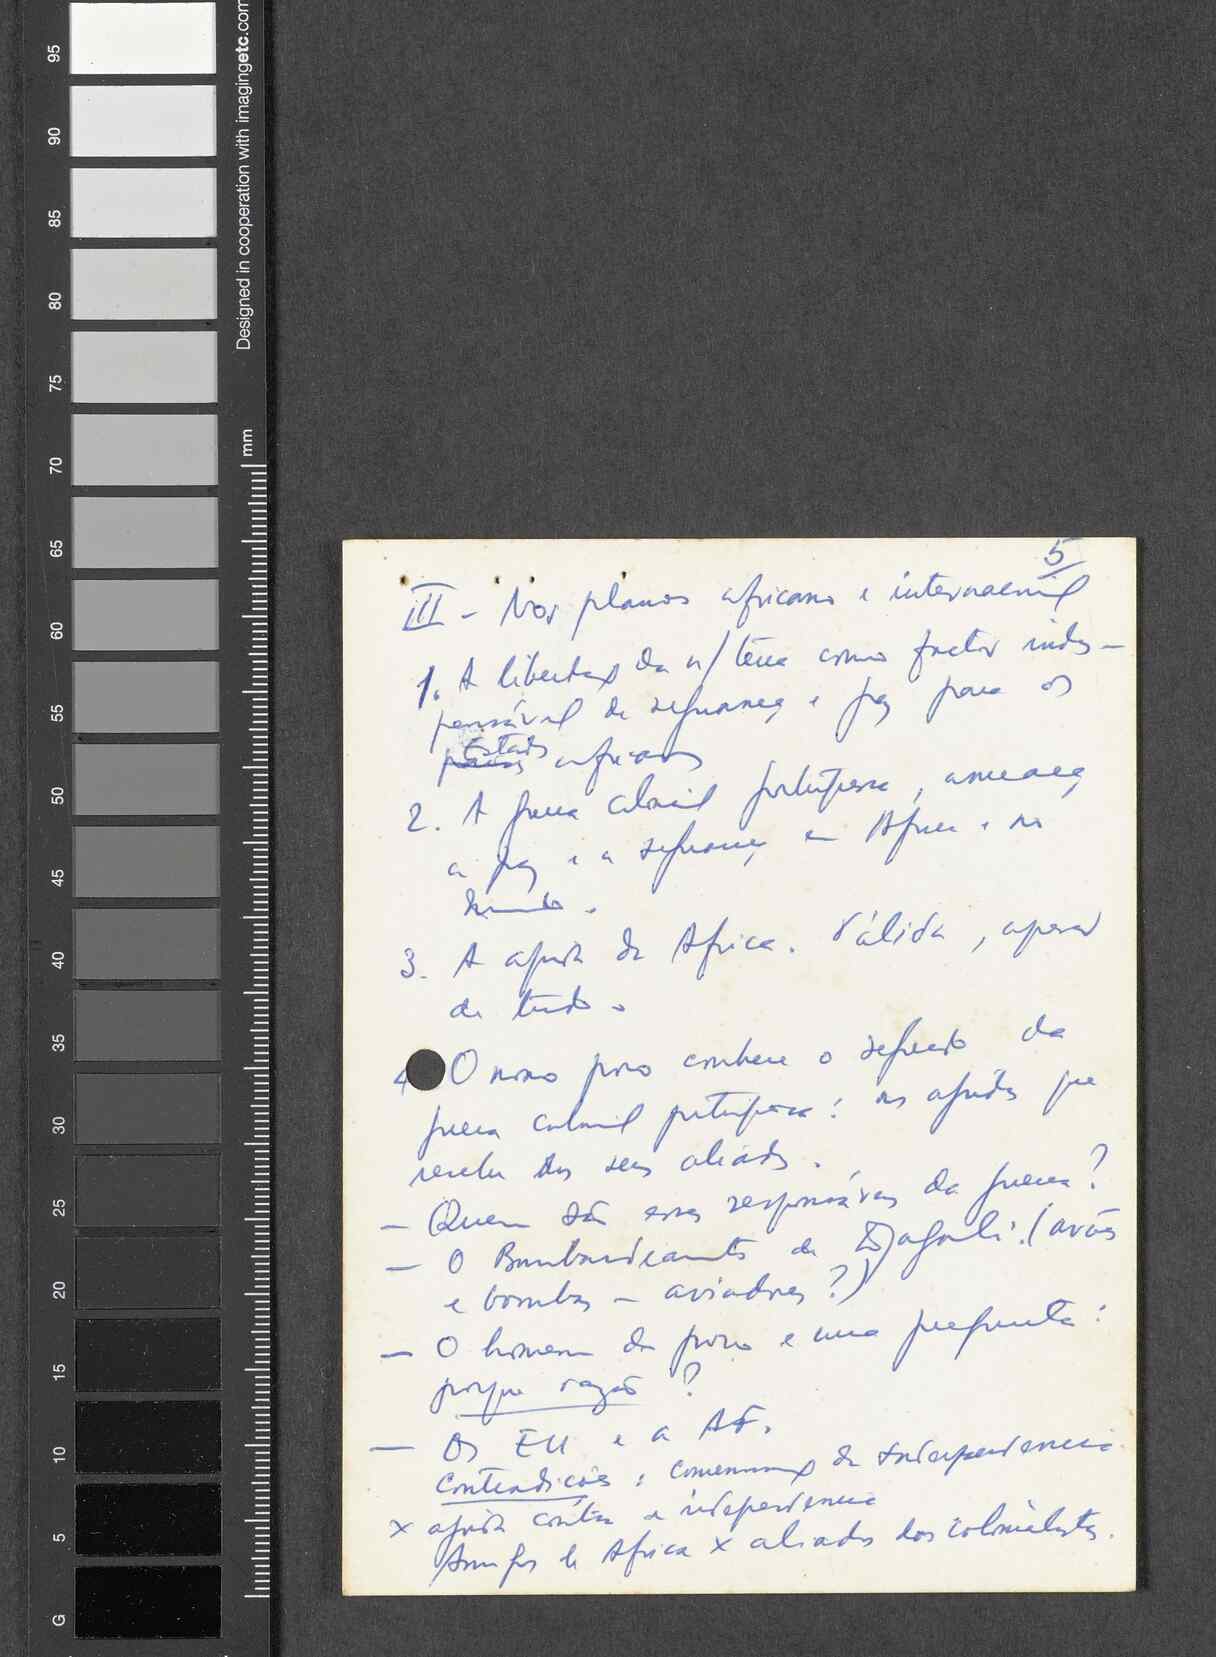 95
90
85
80
75
70
65
60
55
50
45
40
35
30
25
20
15
10
5
G
Designed in cooperation with imagingetc.com
mm
5
III - Nos planos africano e internacional
1. A libertação da n/ terra como factor indis-
pensável de segurança e paz para os
Estados
países africanos
2. A guerra colonial portuguesa, ameaça
a paz e a segurança em África e no
mundo.
3. A ajuda de África. Válida, apesar
de tudo.
4 O nosso povo conhece o segredo da
guerra colonial portuguesa: as ajudas que
recebe dos seus aliados.
- Quem são esses responsáveis da guerra?
- O Bombardeamento de (aviões
e bombas - aviadores?)
- O homem do povo e uma pergunta:
porque razão?
- Os EU e a AF.
Contradições: de Independencia
x ajuda contra a independencia
Amigos de Africa x aliados dos colonialistas.